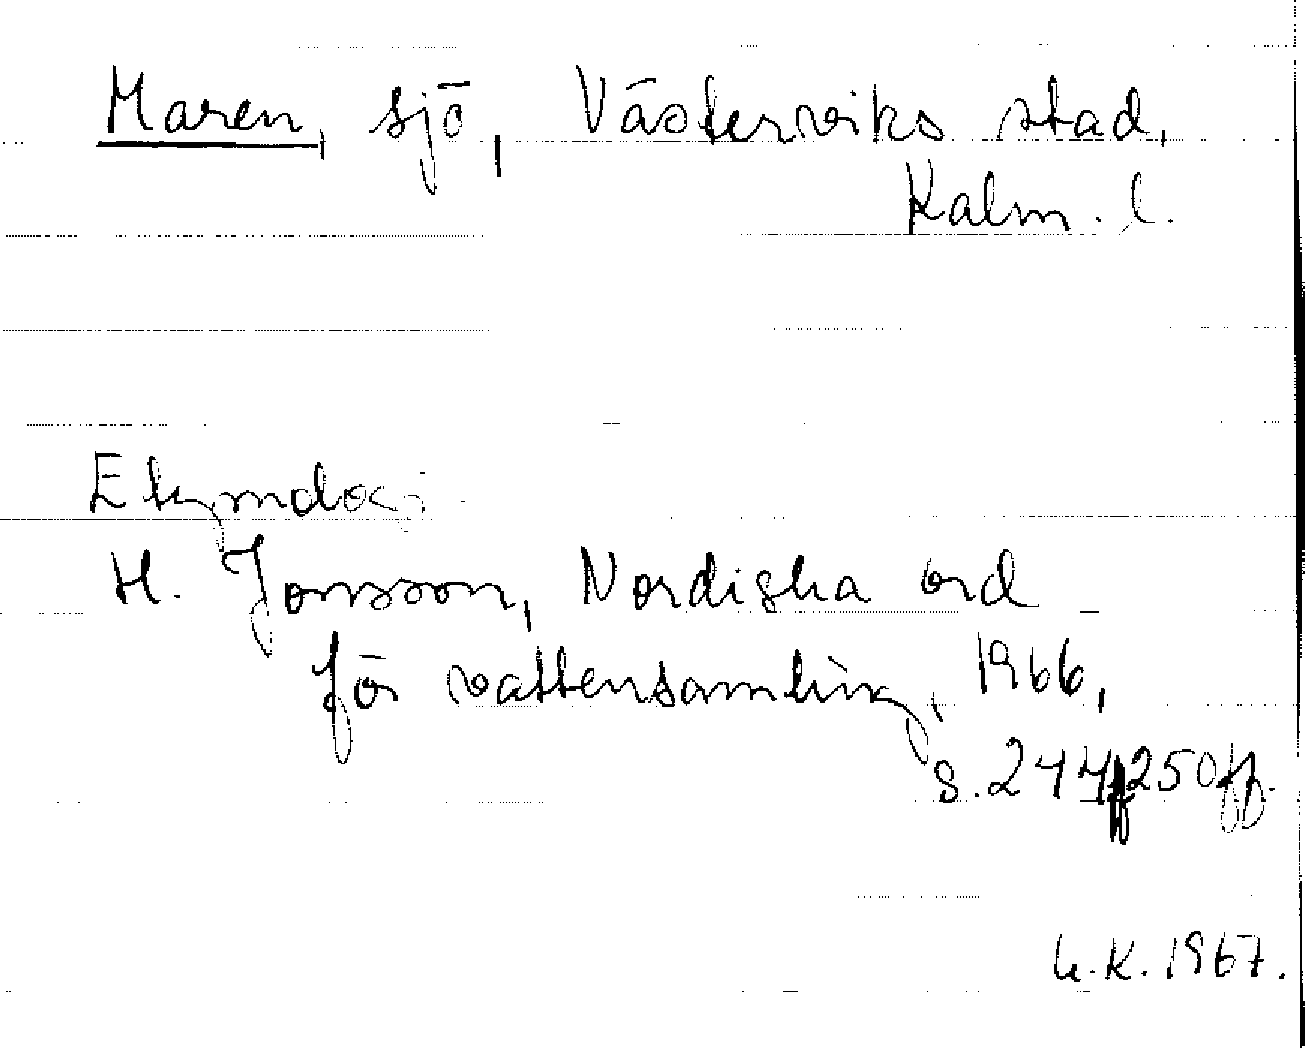 Maren, sjö, Västerviks stad,
Kalm. l.
Etymologi
H. Jonsson, Nordiska ord
för vattensamling, 1966,
s. 244 250 ff.
K. 1967.